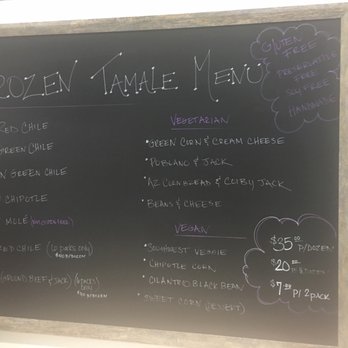 ROZEN TAMALE MENU
GLUTEN
FREE
PRESERVATIVE
FREE
SOY FREE
HANDMADE
RED CHILE
GREEN CHILE
N GREEN CHILE
CHIPOTLE
MOLE
RED CHILE (6 packs only)
(GROUND BEEF & JACK)
VEGETARIAN
• GREEN CORN & CREAM CHEESE
• POBLANO & JACK
• AZ CORNBREAD & COLBY JACK
• BEANS & CHEESE
VEGAN
• SOUTHWEST VEGGIE
• CHIPOTLE CORN
• CILANTRO BLACK BEAN
• SWEET CORN (DESSERT)
$35.00 P/DOZEN
$20.00
P/ 2 PACK